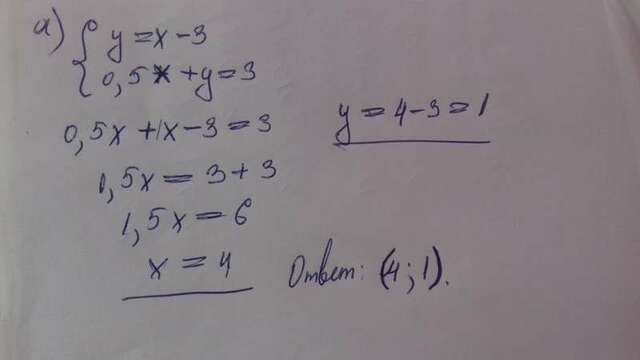 а) { y = x - 3
0,5x + y = 3
0,5x + x - 3 = 3
1,5x = 3 + 3
1,5x = 6
x = 4
y = 4 - 3 = 1
Ответ: (4; 1).